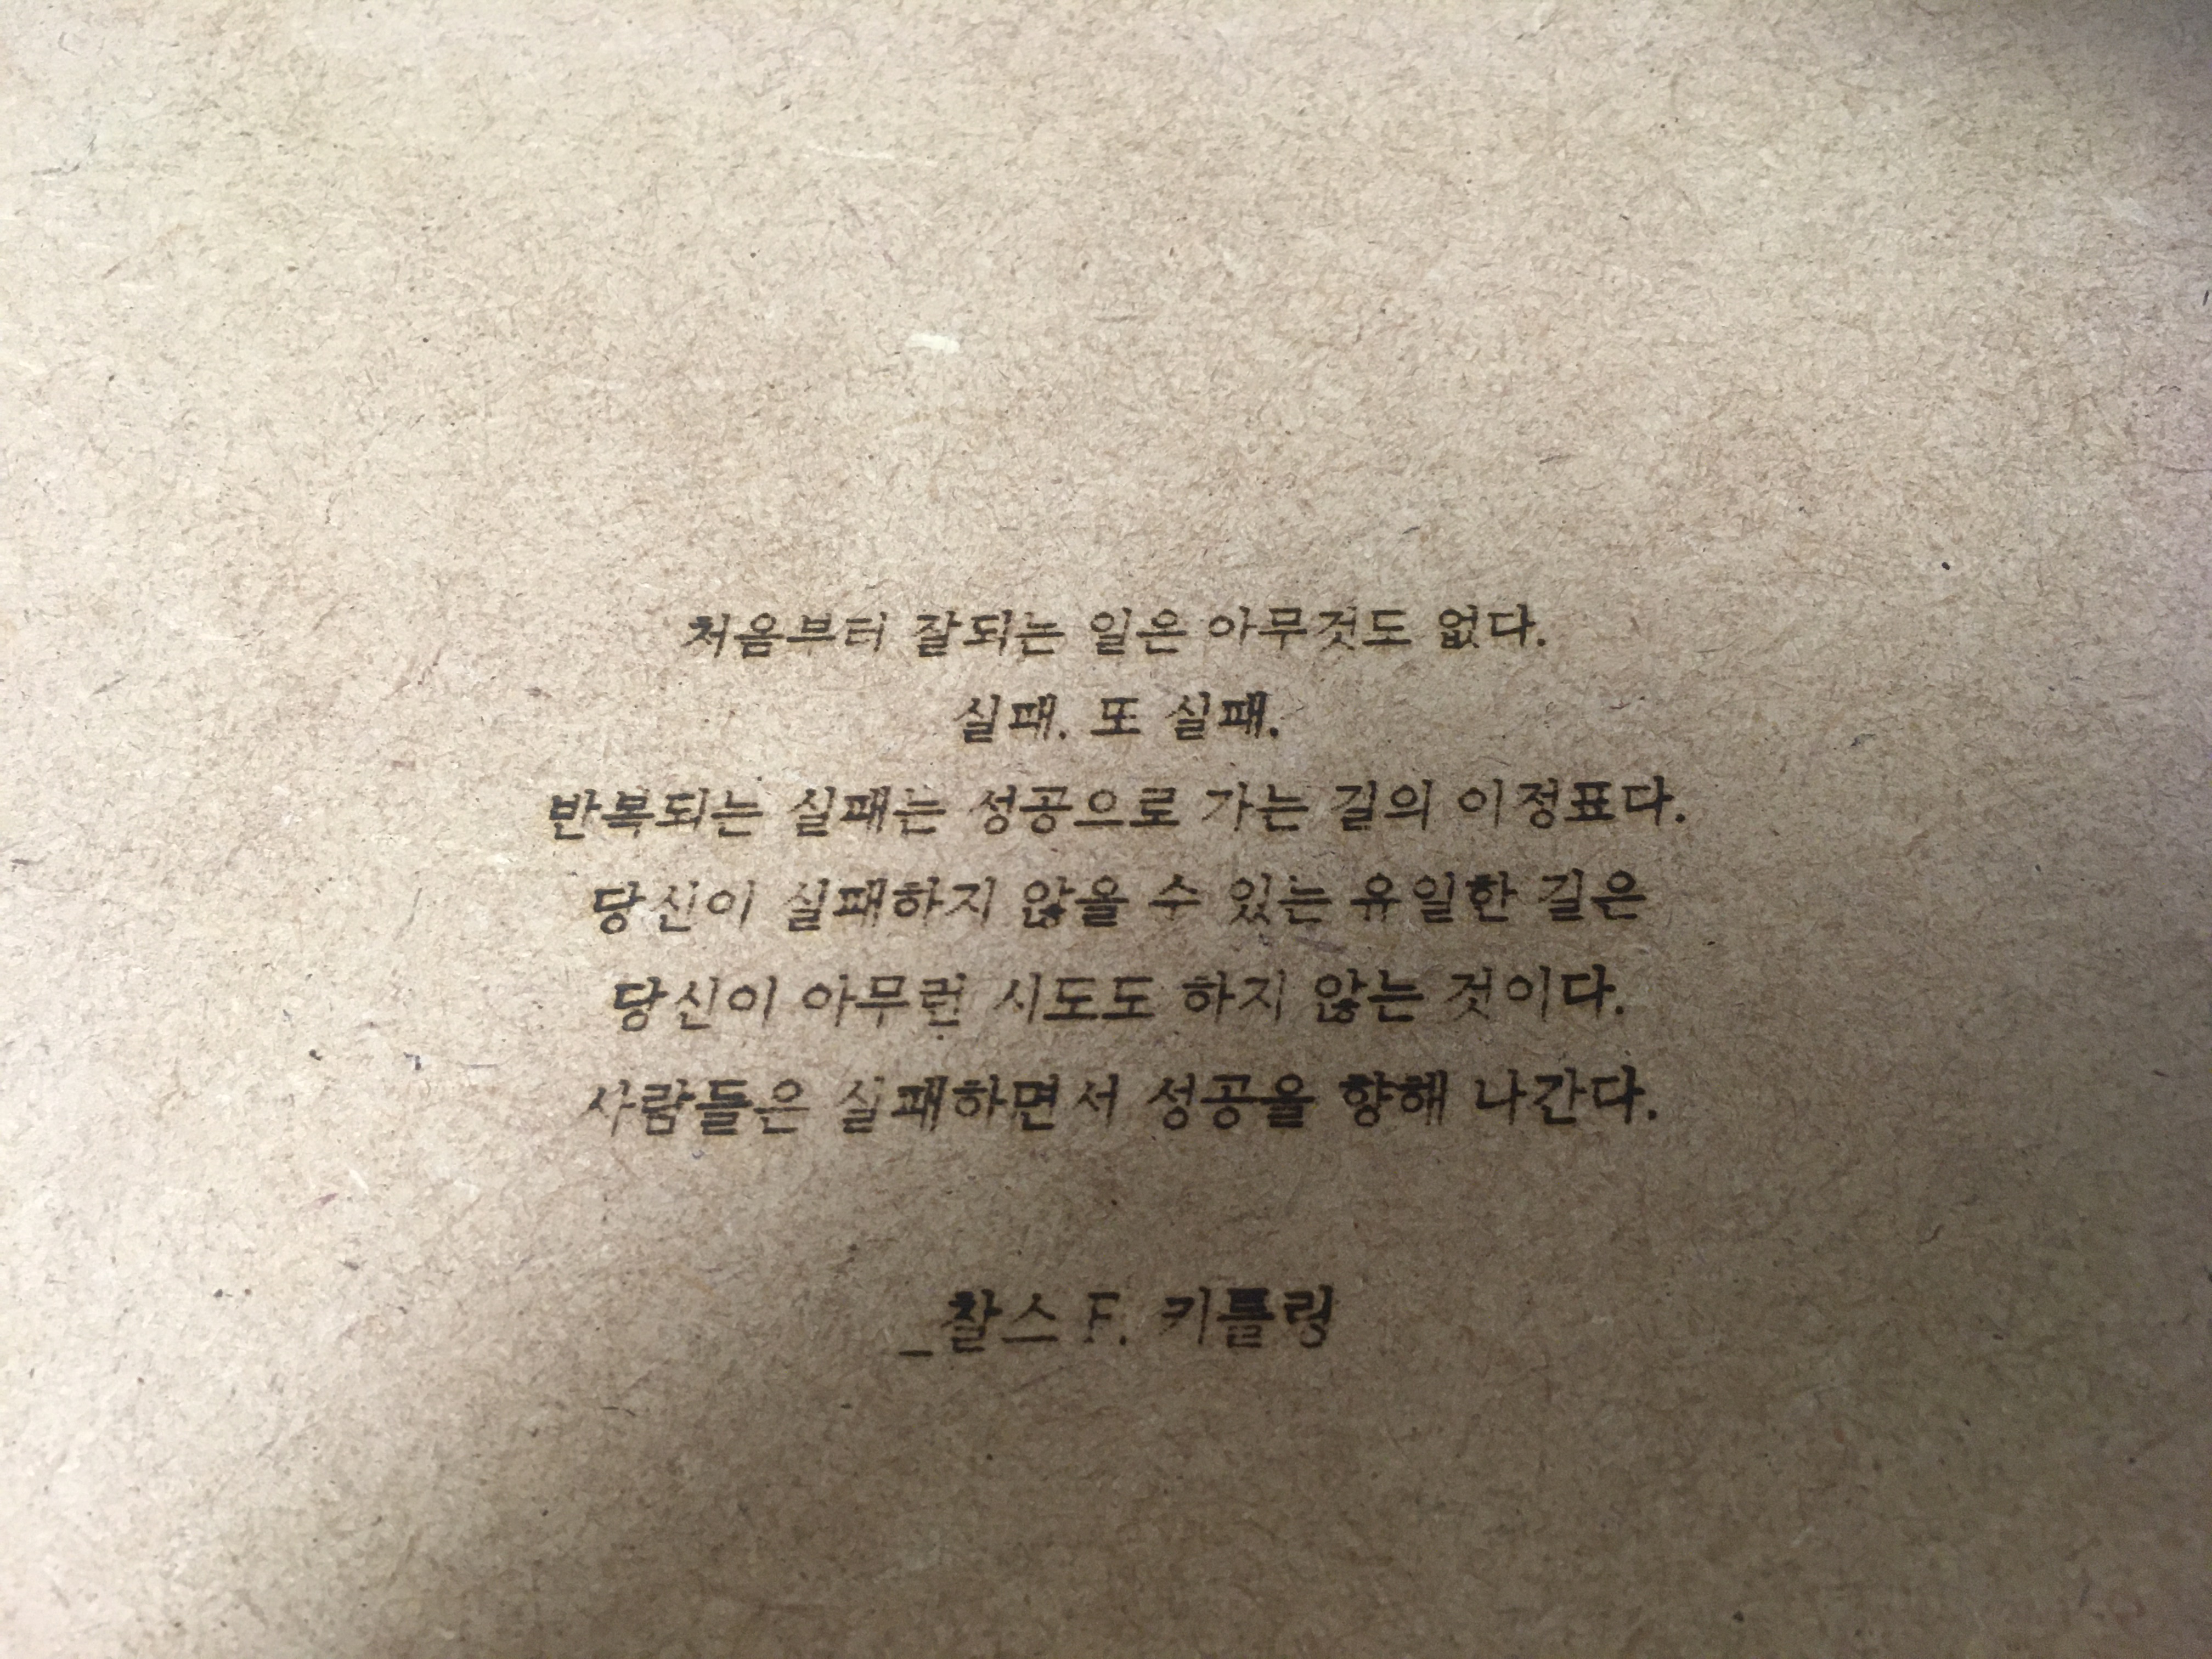 처음부터 잘되는 일은 아무것도 없다.
실패. 또 실패.
반복되는 실패는 성공으로 가는 길의 이정표다.
당신이 실패하지 않을 수 있는 유일한 길은
당신이 아무런 시도도 하지 않는 것이다.
사람들은 실패하면서 성공을 향해 나간다.
_찰스 F. 키틀링